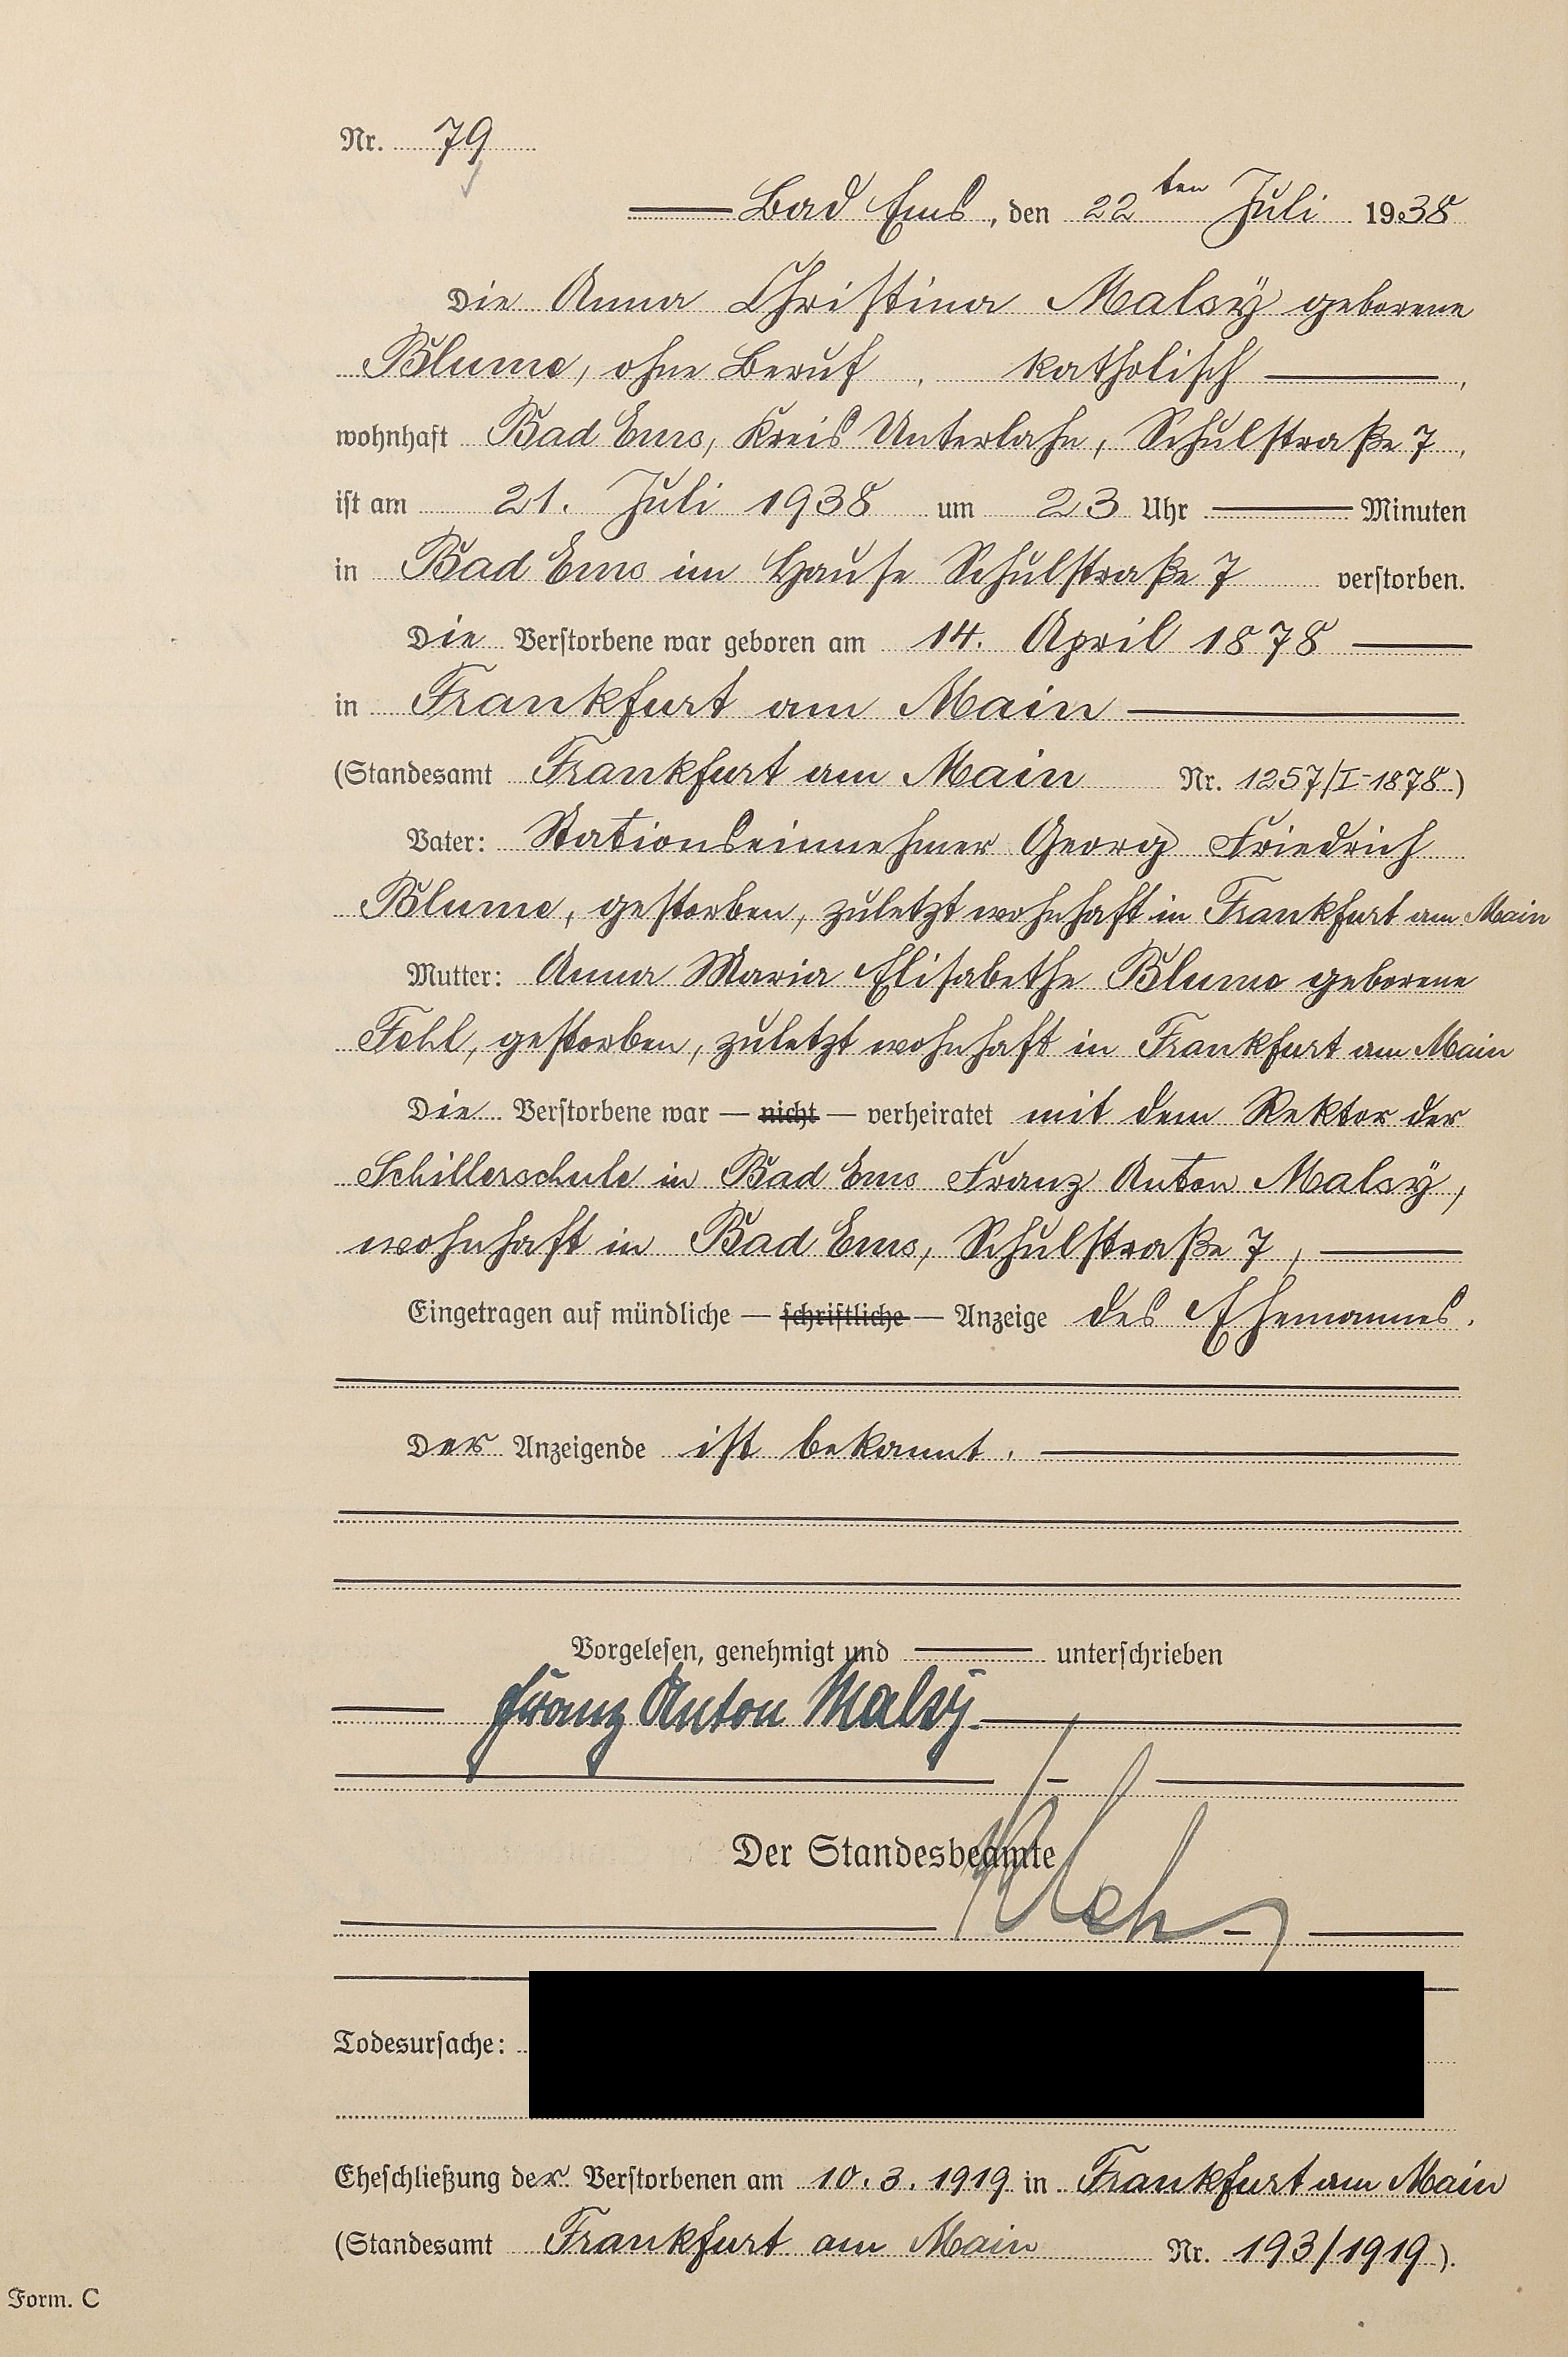 Nr. 79
Bad Ems, den 22ten Juli 1938
Die Anna Christina Malsÿ geborene
Blume, ohne Beruf, katholisch,
wohnhaft Bad Ems, Kreis Unterlahn, Schulstraße 7,
ist am 21. Juli 1938 um 23 Uhr Minuten
in Bad Ems im Hause Schulstraße 7 verstorben.
Die Verstorbene war geboren am 14. April 1878
in Frankfurt am Main
(Standesamt Frankfurt am Main Nr. 1257/I-1878)
Vater: Stationseinnehmer Georg Friedrich
Blume, gestorben, zuletzt wohnhaft in Frankfurt am Main
Mutter: Anna Maria Elisabethe Blume geborene
Fehl, gestorben, zuletzt wohnhaft in Frankfurt am Main
Die Verstorbene war — nicht — verheiratet mit dem Rektor der
Schillerschule in Bad Ems Franz Anton Malsÿ,
wohnhaft in Bad Ems, Schulstraße 7,
Eingetragen auf mündliche — schriftliche — Anzeige des Ehemannes.
Der Anzeigende ist bekannt.
Vorgelesen, genehmigt und unterschrieben
Franz Anton Malsÿ.
Der Standesbeamte
Todesursache:
Eheschließung der Verstorbenen am 10.3.1919 in Frankfurt am Main
(Standesamt Frankfurt am Main Nr. 193/1919).
Form. C